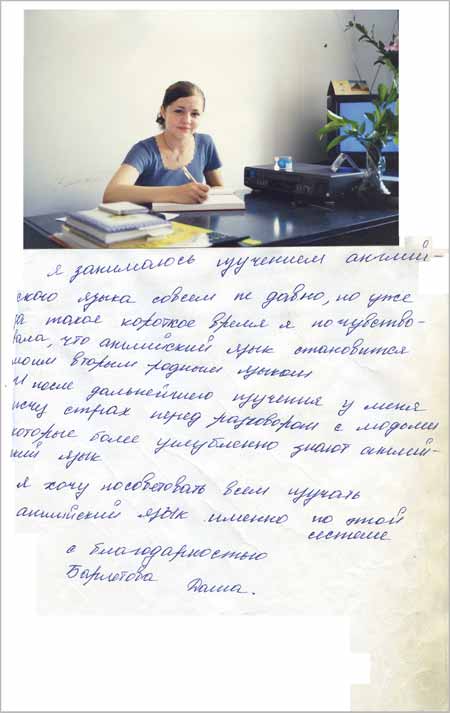 Я занимаюсь изучением англий-
ского языка совсем не давно, но уже
за такое короткое время я почувство-
вала, что английский язык становится
моим вторым родным языком
И после дальнейшего изучения у меня
исчез страх перед разговором с людьми
которые более углубленно знают англий-
кий язык
Я хочу посоветовать всем изучать
английский язык именно по этой
системе
с благодарностью
Даша.